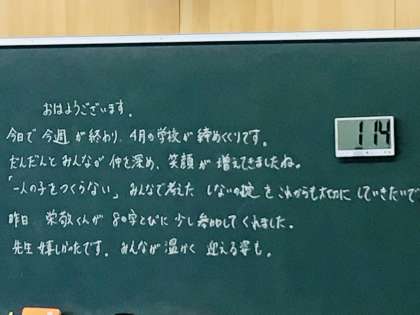 おはようございます。
今日で 今週 が終わり、4月の学校が 締めくくりです。
だんだんと みんなが 仲を深め、笑顔が 増えてきましたね。
「一人の子をつくらない」 みんなで考えた しないの掟 を これからも大切に していきたいで
昨日 栄敬くんが 8の字とびに 少し参加してくれました。
先生 嬉しかったです。 みんなが 温かく 迎える姿も。
114